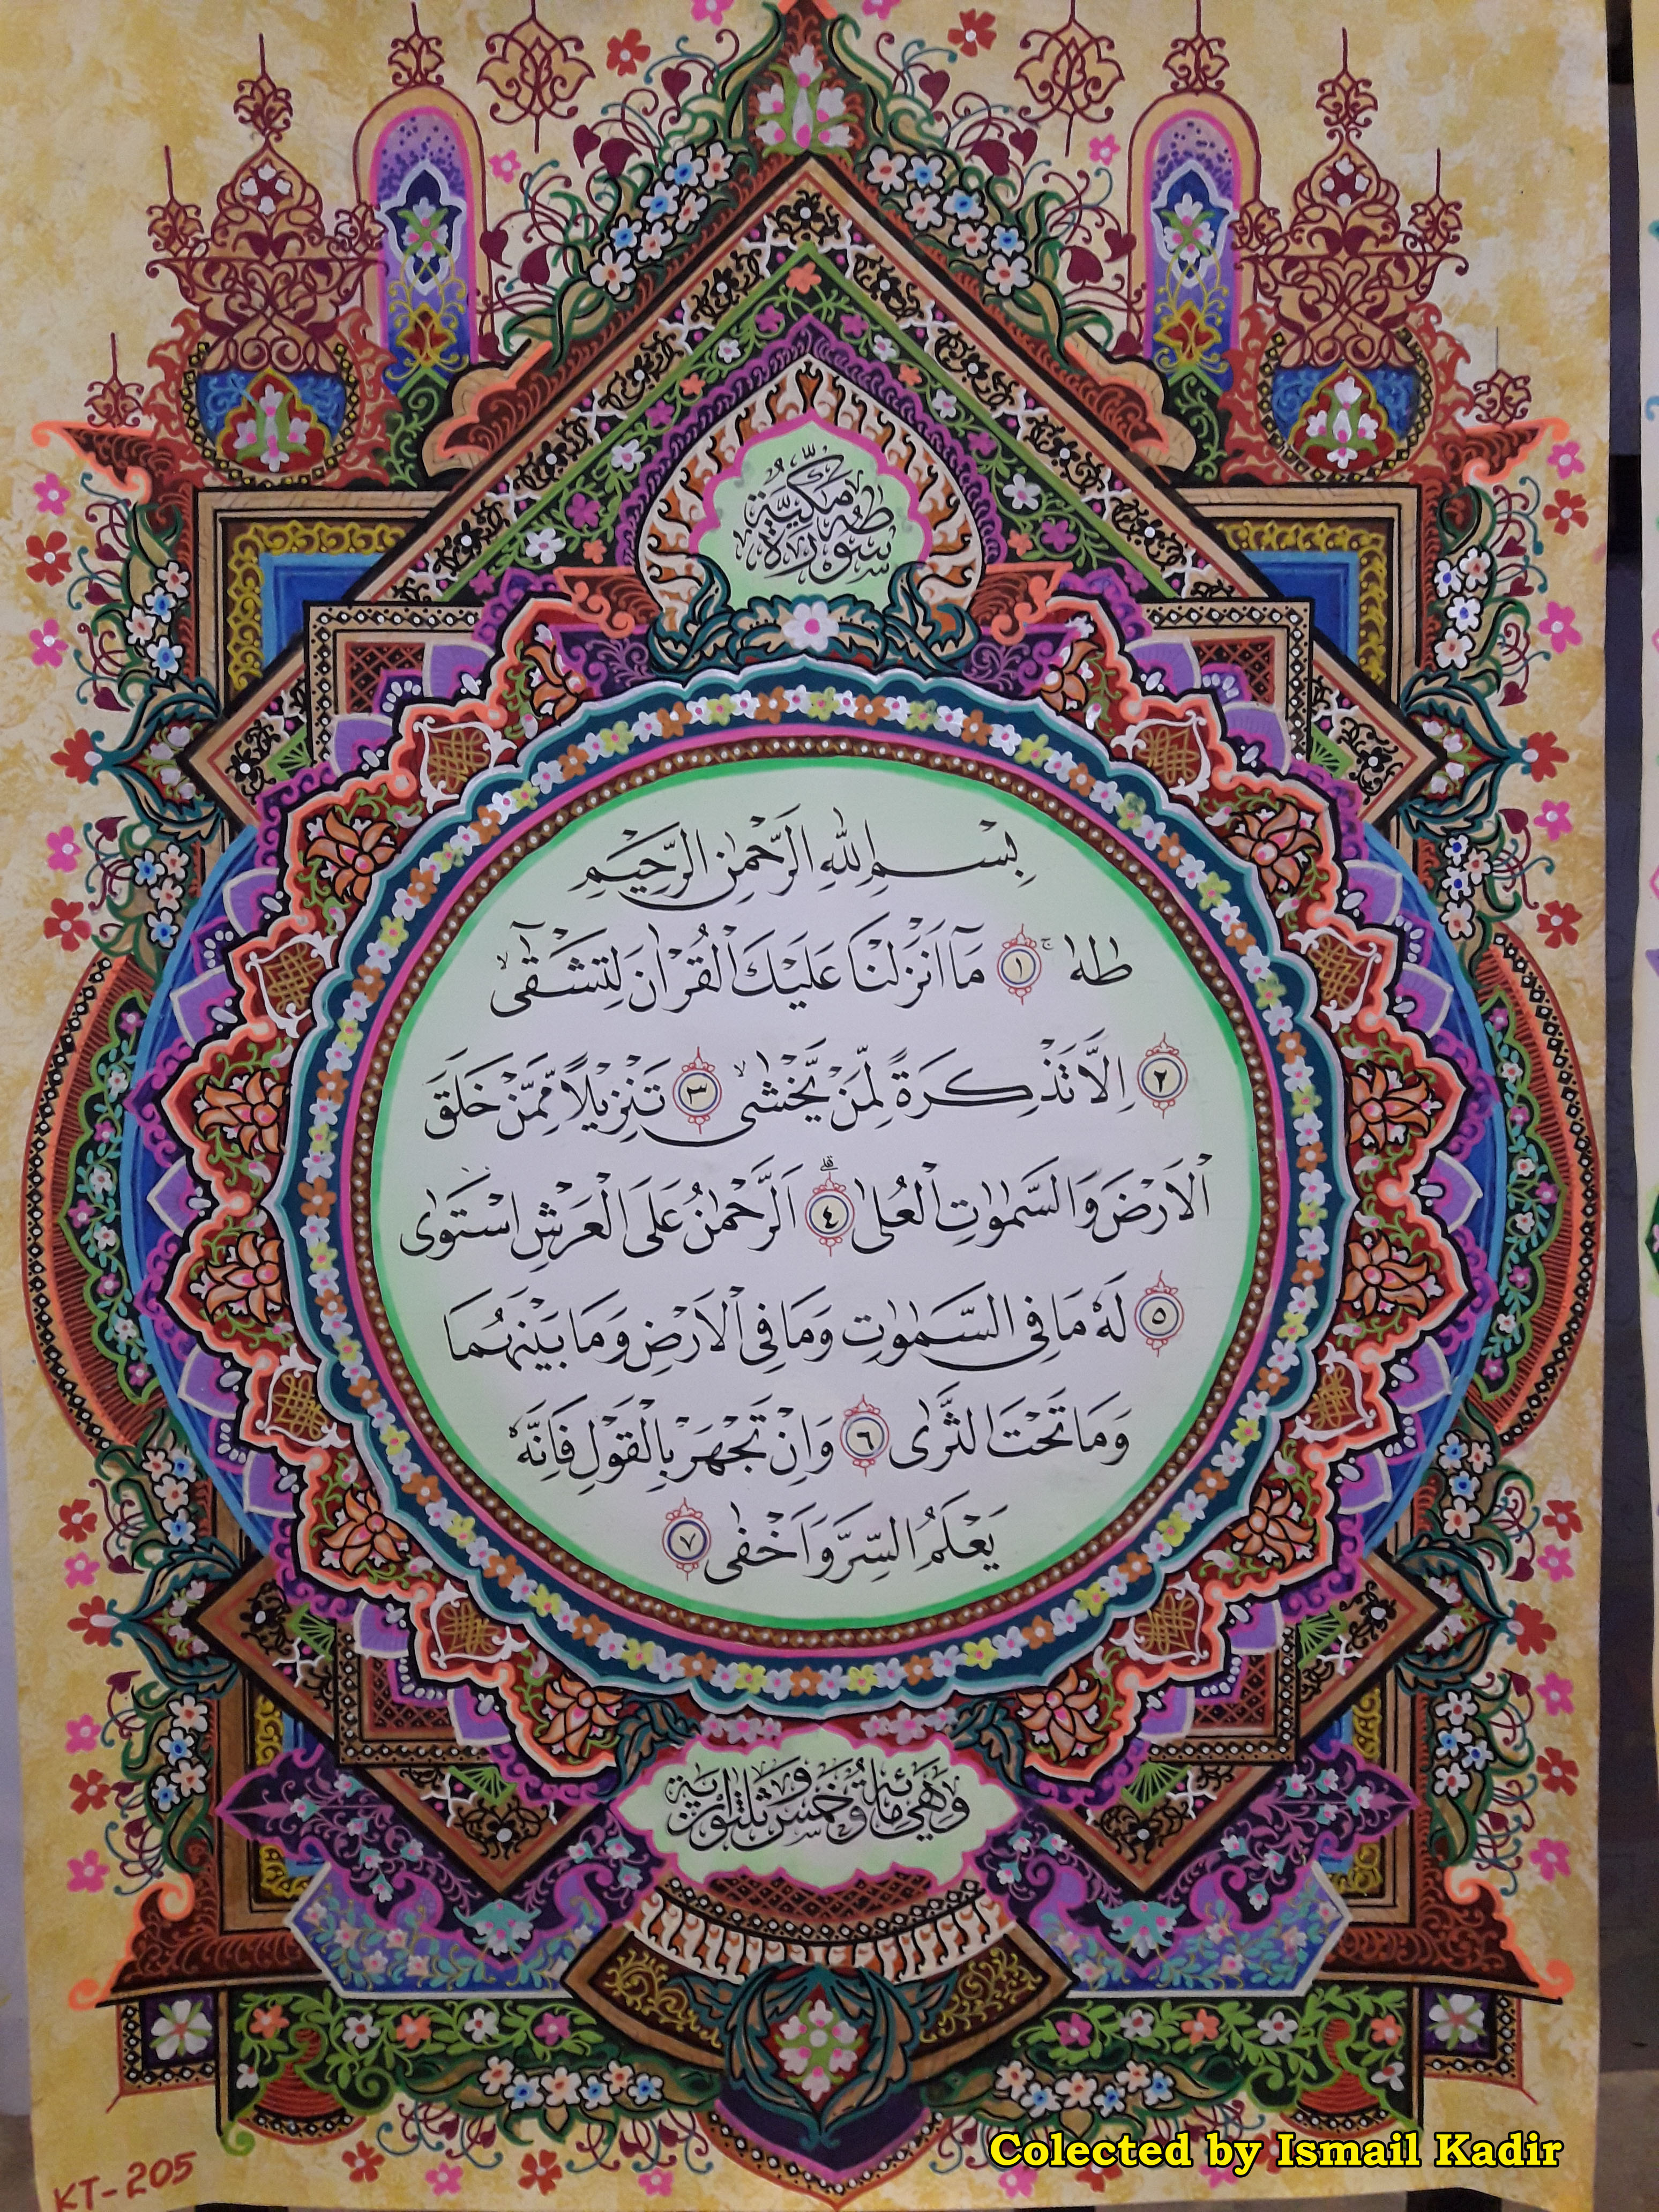 سورة طه مكية
بِسْمِ اللهِ الرَّحْمٰنِ الرَّحِيْمِ
طٰهٰ ۚ ١ مَآ اَنْزَلْنَا عَلَيْكَ الْقُرْاٰنَ لِتَشْقٰٓىۙ
٢ اِلَّا تَذْكِرَةً لِّمَنْ يَّخْشٰىۙ ٣ تَنْزِيْلًا مِّمَّنْ خَلَقَ
الْاَرْضَ وَالسَّمٰوٰتِ الْعُلٰى ۗ ٤ اَلرَّحْمٰنُ عَلَى الْعَرْشِ اسْتَوٰى
٥ لَهٗ مَا فِى السَّمٰوٰتِ وَمَا فِى الْاَرْضِ وَمَا بَيْنَهُمَا
وَمَا تَحْتَ الثَّرٰى ٦ وَاِنْ تَجْهَرْ بِالْقَوْلِ فَاِنَّهٗ
يَعْلَمُ السِّرَّ وَاَخْفٰى ٧
وهي مائة وخمس وثلثون اية
KT-205
Colected by Ismail Kadir